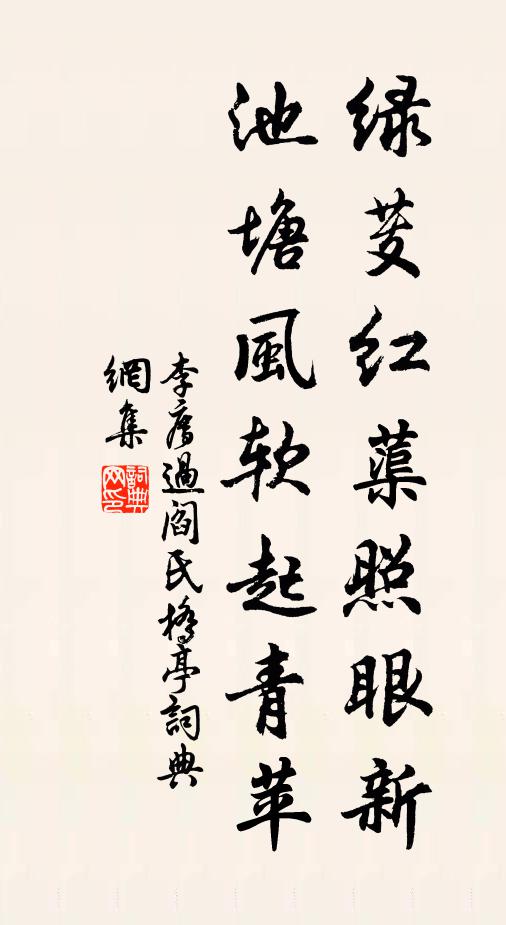 绿芰红蕖照眼新
池塘風软起青苹
李廌過阎氏橋亭詞典
網集
詞典
网印